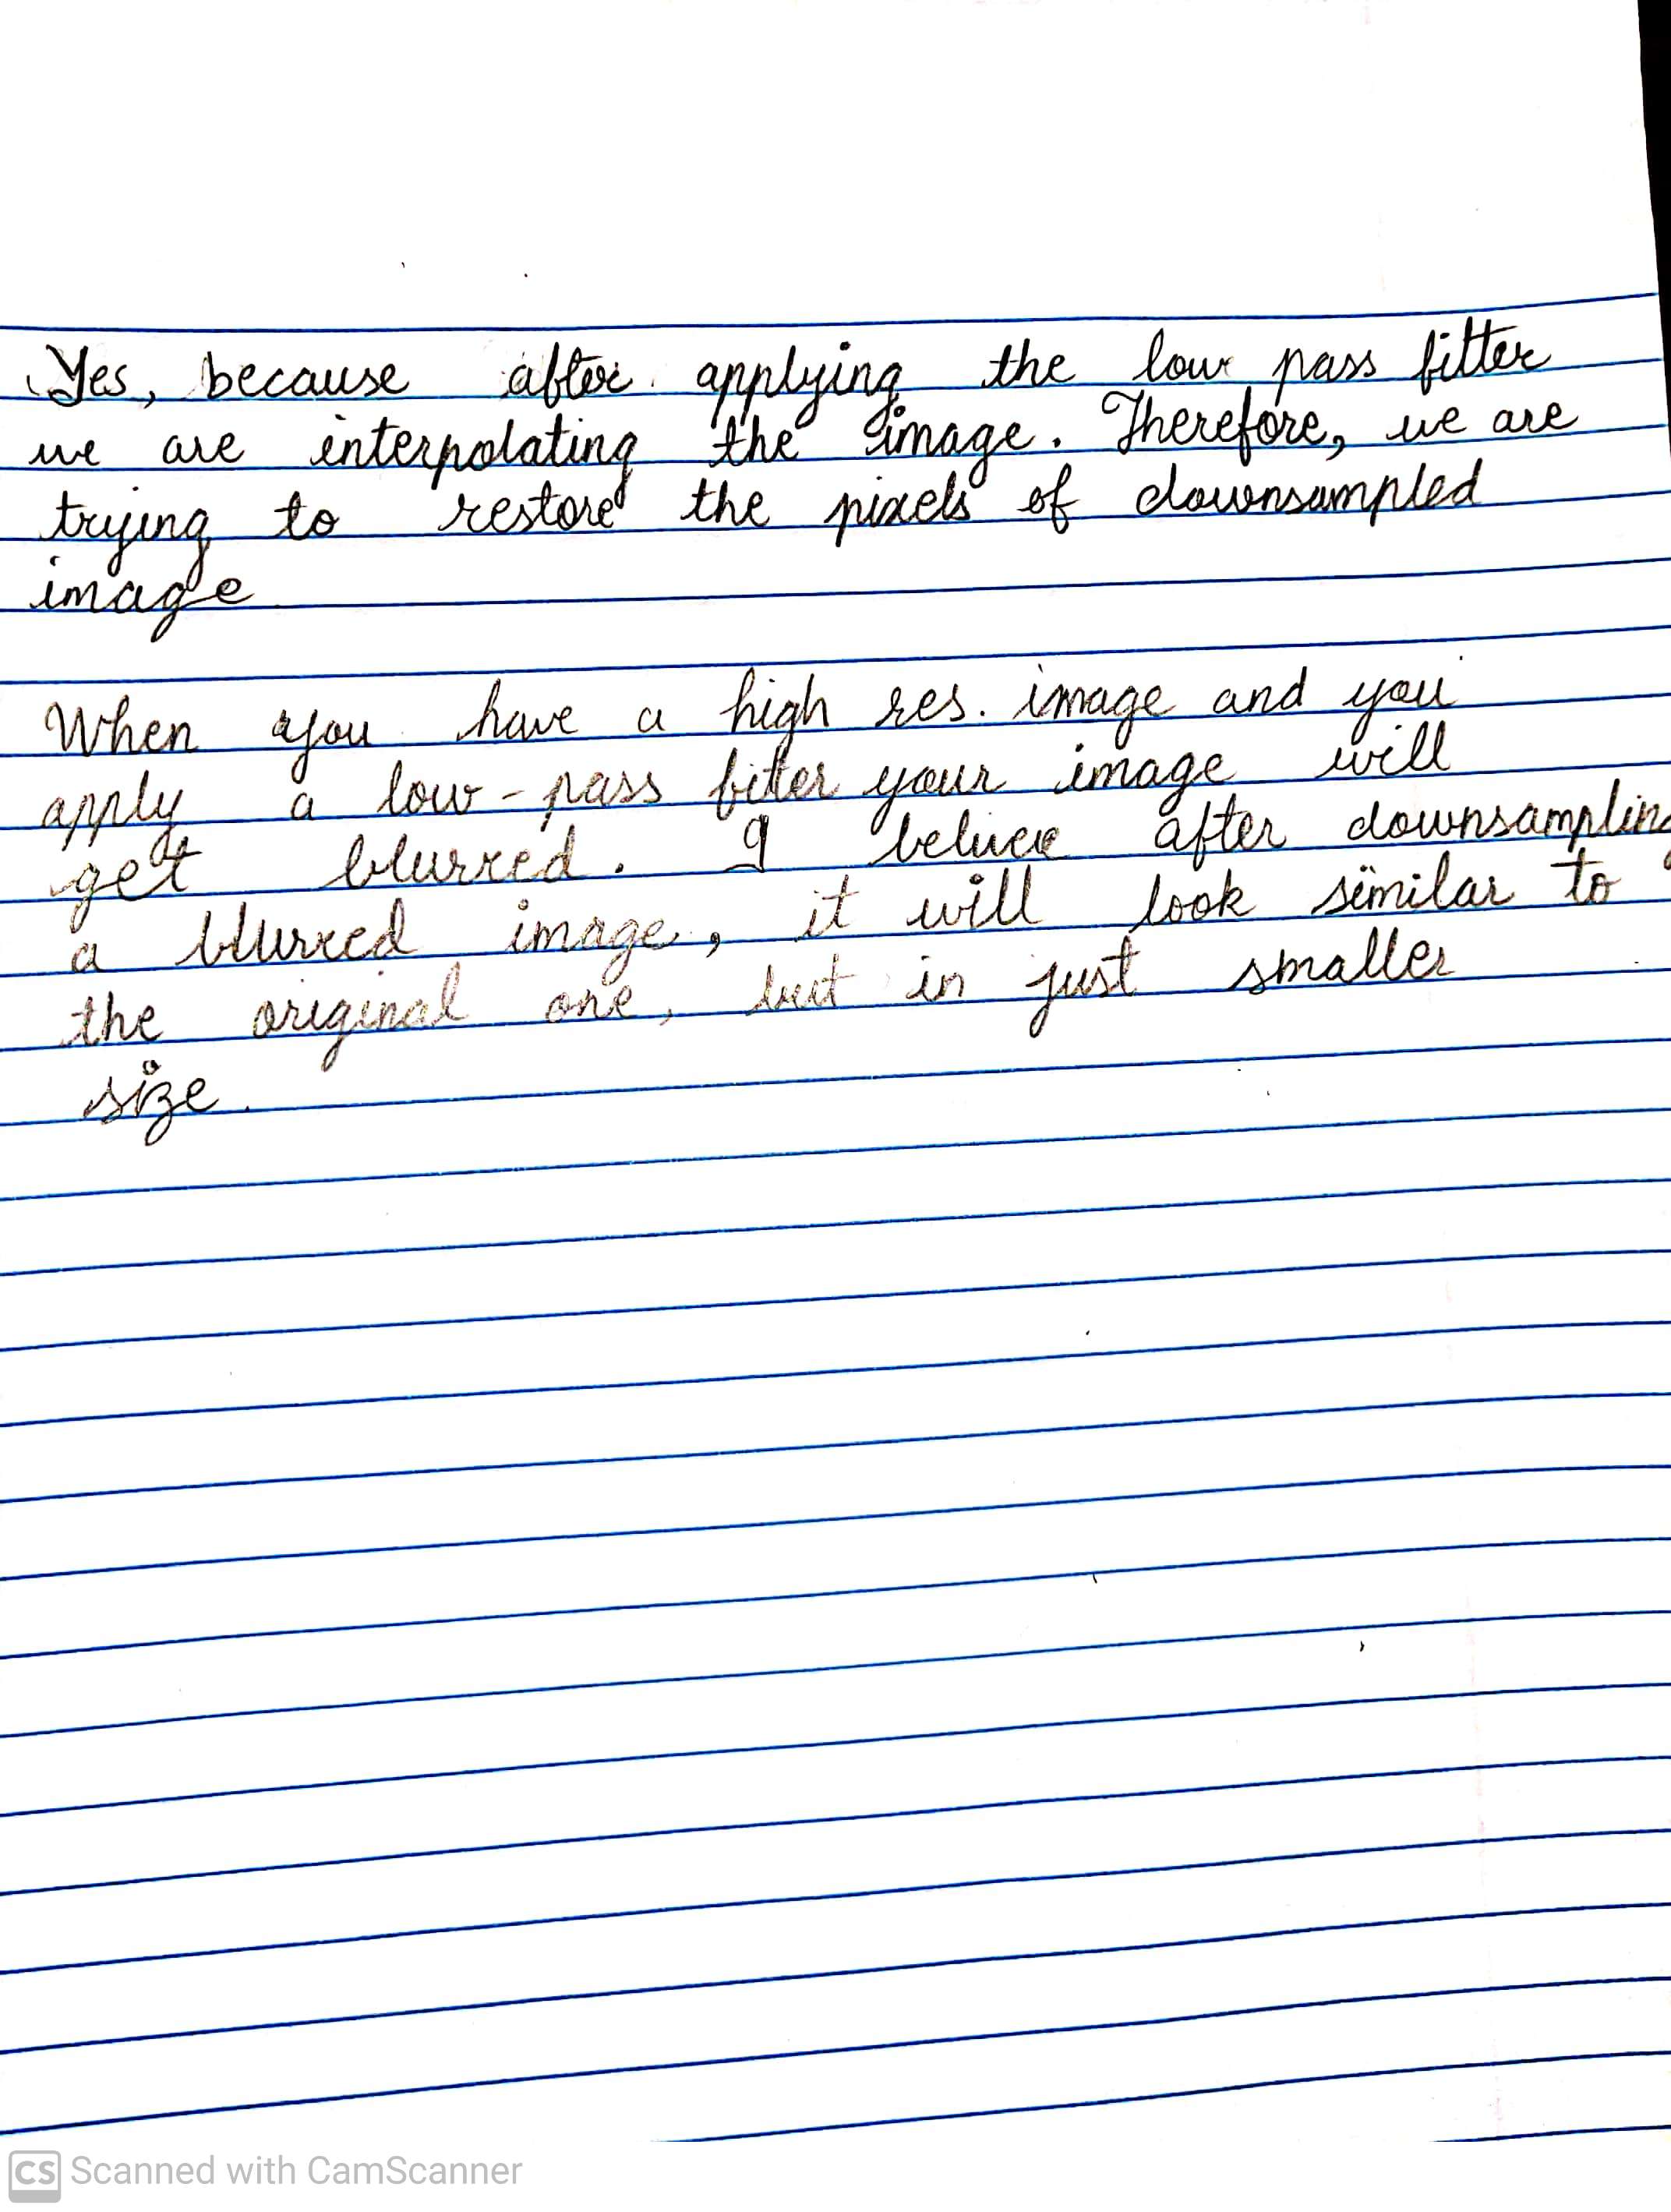 Yes, because after applying the low pass filter
we are interpolating the image. Therefore, we are
trying to restore the pixels of downsampled
image
When you have a high res. image and you
apply a low-pass filter your image will
get blurred. I beluve after downsampling
a blurred image, it will look similar to
the original one, but in just smaller
size.
CS Scanned with CamScanner